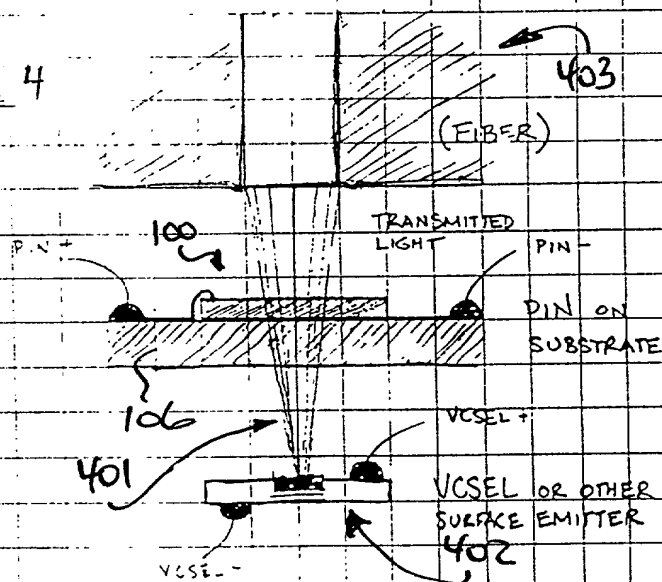 4
403
(FIBER)
TRANSMITTED
LIGHT
100
PIN +
PIN -
PIN ON
SUBSTRATE
106
VCSEL +
401
VCSEL OR OTHER
SURFACE EMITTER
402
VCSEL -